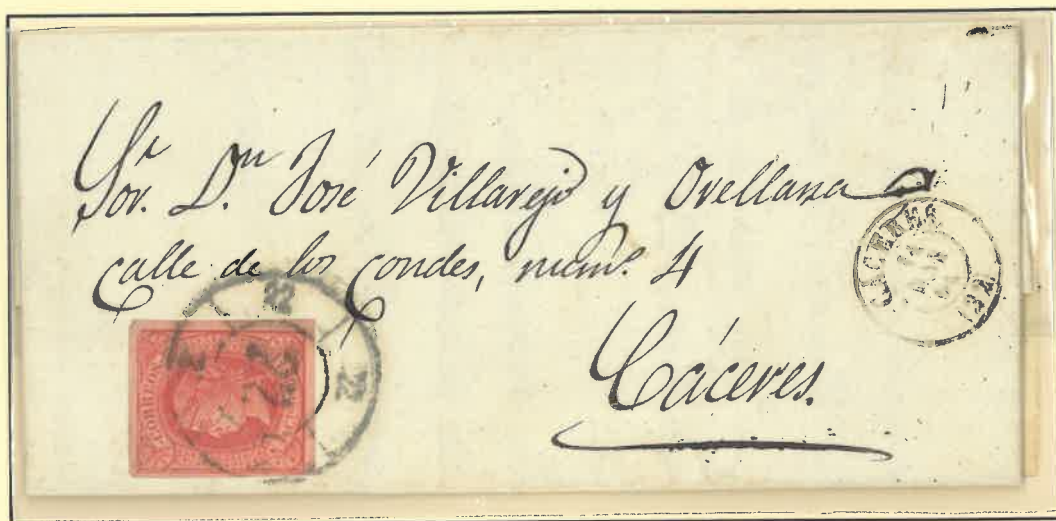 Sr. Dn José Villarejo y Orellana
calle de los Condes, núm.º 4
Cáceres.
CACERES
CORREOS